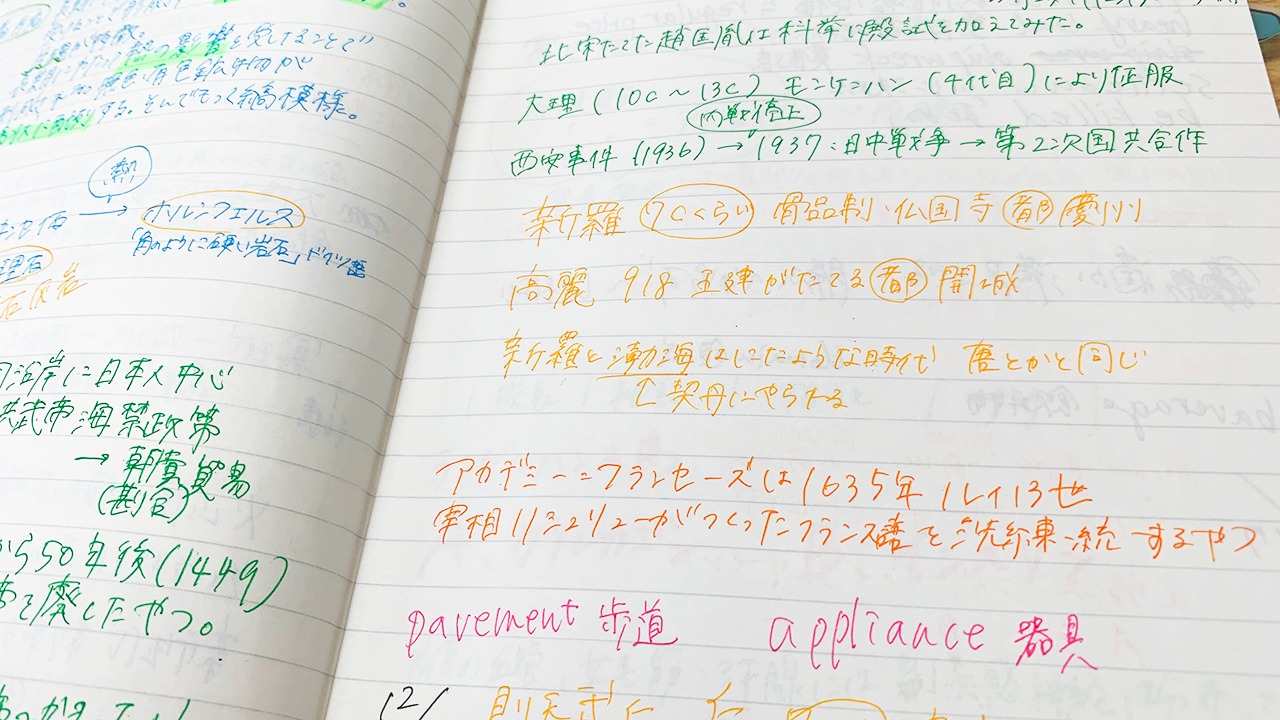 影響を受けることで
縞模様。
熱
→ ホルンフェルス
「角のように硬い岩石」ドイツ語
石灰岩
沿岸に日本人中心
洪武帝 海禁政策
→ 朝貢貿易
(勘合)
から50年後(1449)
廃したやつ。
北宋たてた趙匡胤は科挙に殿試を加えてみた。
大理(10c〜13c) モンケ=ハン(4代目)により征服
内戦停止
西安事件(1936) → 1937:日中戦争 → 第2次国共合作
新羅 7cくらい 骨品制・仏国寺 都 慶州
高麗 918 王建がたてる 都 開城
新羅と渤海はにたような時代 唐とかと同じ
↑契丹にやられる
アカデミー=フランセーズは1635年 ルイ13世
宰相リシュリューがつくったフランス語を洗練・統一するやつ
pavement 歩道 appliance 器具
121 則天武